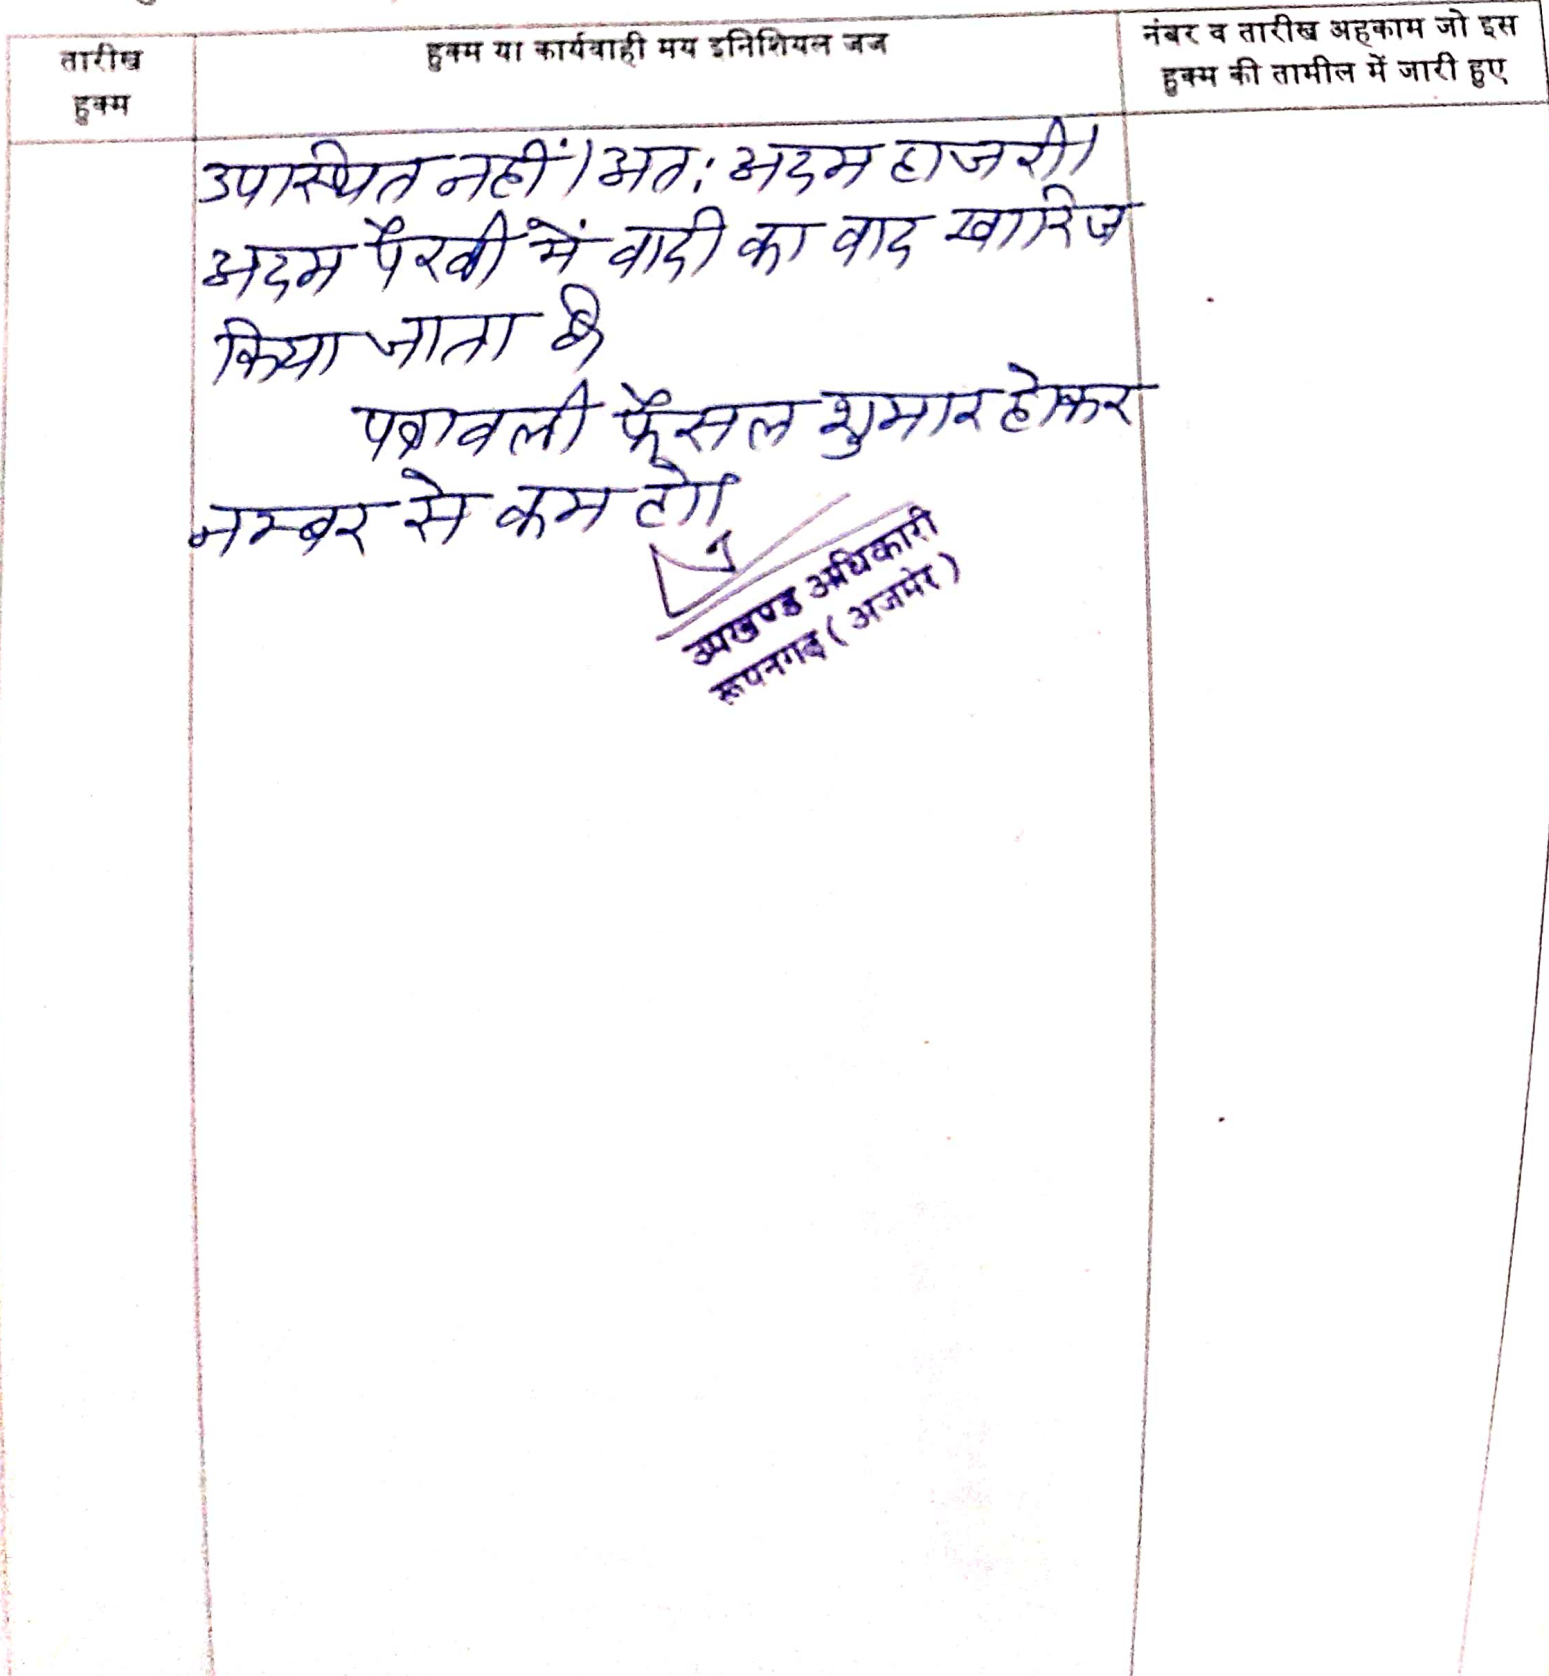 तारीख
हुक्म
हुक्म या कार्यवाही मय इनिशियल जज
नंबर व तारीख अहकाम जो इस
हुक्म की तामील में जारी हुए
उपस्थित नहीं। अत: अदम हाजरी।
अदम पैरवी में वादी का वाद खारिज
किया जाता है
पत्रावली फैसल शुमार होकर
नम्बर से कम हो।
उपखण्ड अधिकारी
रूपनगढ़ (अजमेर)